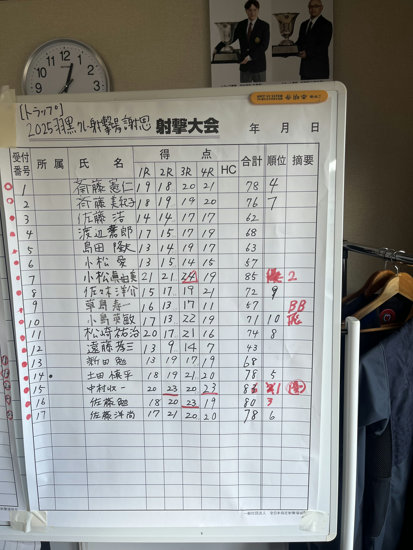 [トラップ]
2025羽黒クレー射撃場謝恩 射撃大会 年 月 日
受付番号 所属 氏名 得点 合計 順位 摘要
1R 2R 3R 4R HC
1 斎藤憲仁 19 18 20 21 78 4
2 18 19 19 20 76 7
3 佐藤浩 14 14 17 17 62
4 17 15 17 19 68
5 島田隆大 13 14 19 17 63
6 小松 13 15 14 15 57
7 小松 21 21 24 19 85 2
8 佐々木 15 17 19 21 72 9
9 16 13 17 11 57 BB
10 小島英敏 17 13 22 19 71 10
11 松本祐治 20 17 21 16 74 8
12 遠藤芳三 13 9 14 7 43
13 新田勉 13 19 17 19 68
14 土田慎平 18 19 21 20 78 5
15 中村収一 20 23 20 23 86 1
16 佐藤勉 18 20 23 19 80 3
17 佐藤洋尚 17 21 20 20 78 6